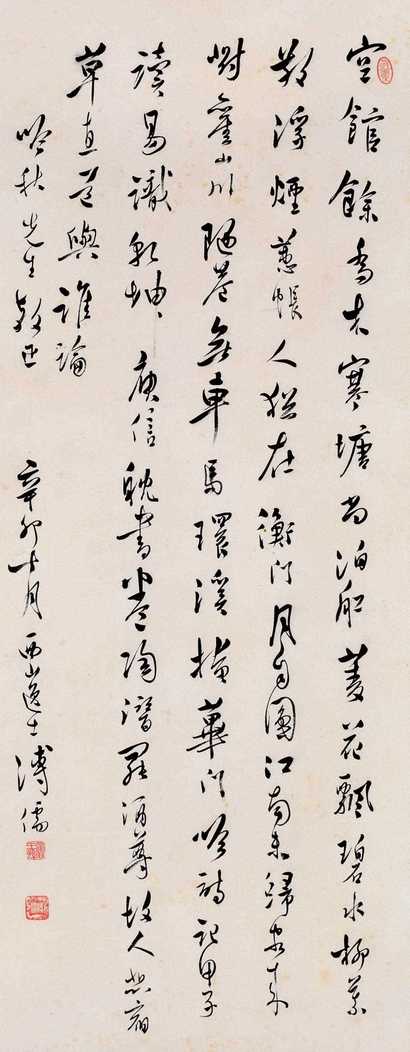 空館餘喬木寒塘尚泊船菱花飄碧水柳葉
散浮煙蕙帳人猶在衡門月自圓江南未歸客來
對舊山川陋巷無車馬環溪掩蓽門吟詩記甲子
讀易識乾坤庾信耽書陶潛罷酒尊故人悲宿
草直道與誰論
吟秋先生教正
辛卯十月西山逸士溥儒